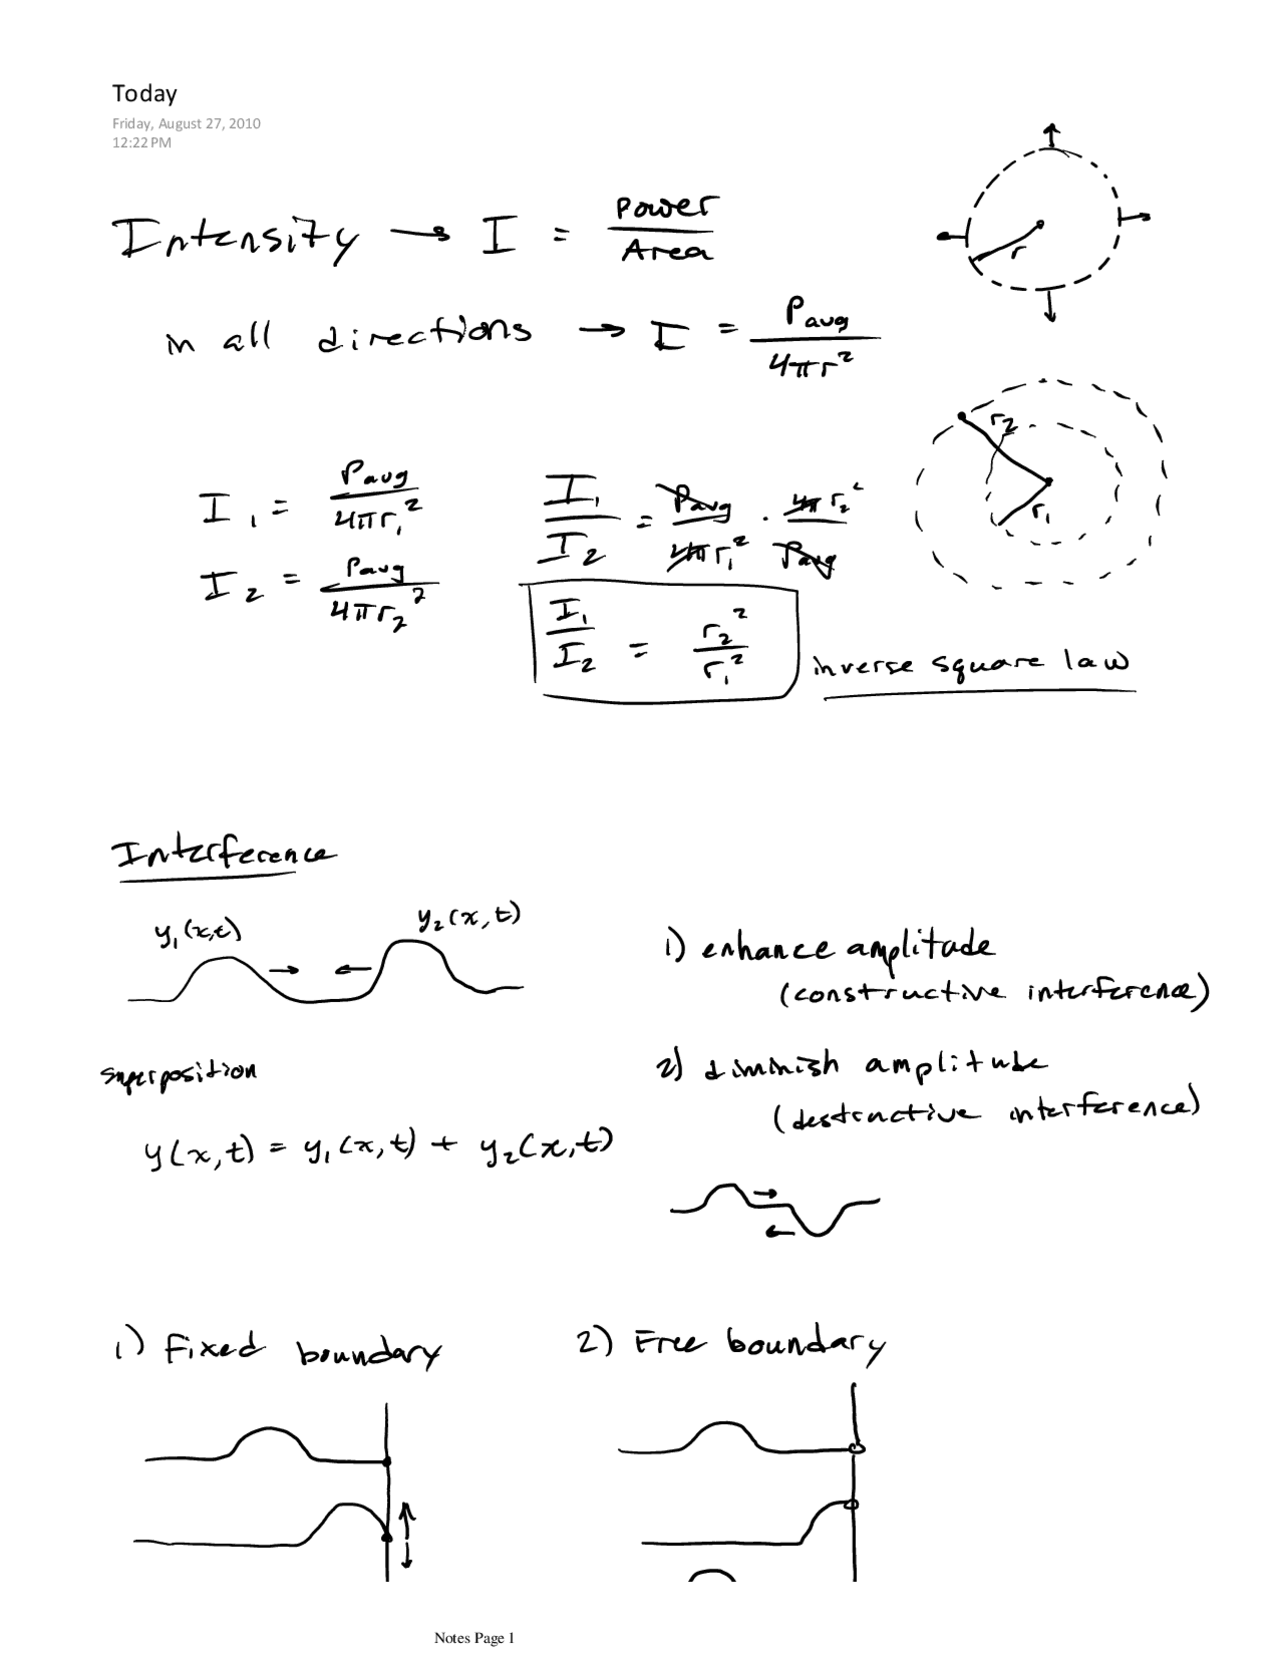 Today
Friday, August 27, 2010
12:22 PM
Intensity → I = Power / Area
r
in all directions → I = Pavg / 4πr²
r₂
r₁
I₁ = Pavg / 4πr₁²
I₁ / I₂ = Pavg / 4πr₁² · 4πr₂² / Pavg
I₂ = Pavg / 4πr₂²
I₁ / I₂ = r₂² / r₁²
inverse square law
Interference
y₁(x,t)
y₂(x,t)
1) enhance amplitude
(constructive interference)
superposition
2) diminish amplitude
(destructive interference)
y(x,t) = y₁(x,t) + y₂(x,t)
1) Fixed boundary
2) Free boundary
Notes Page 1